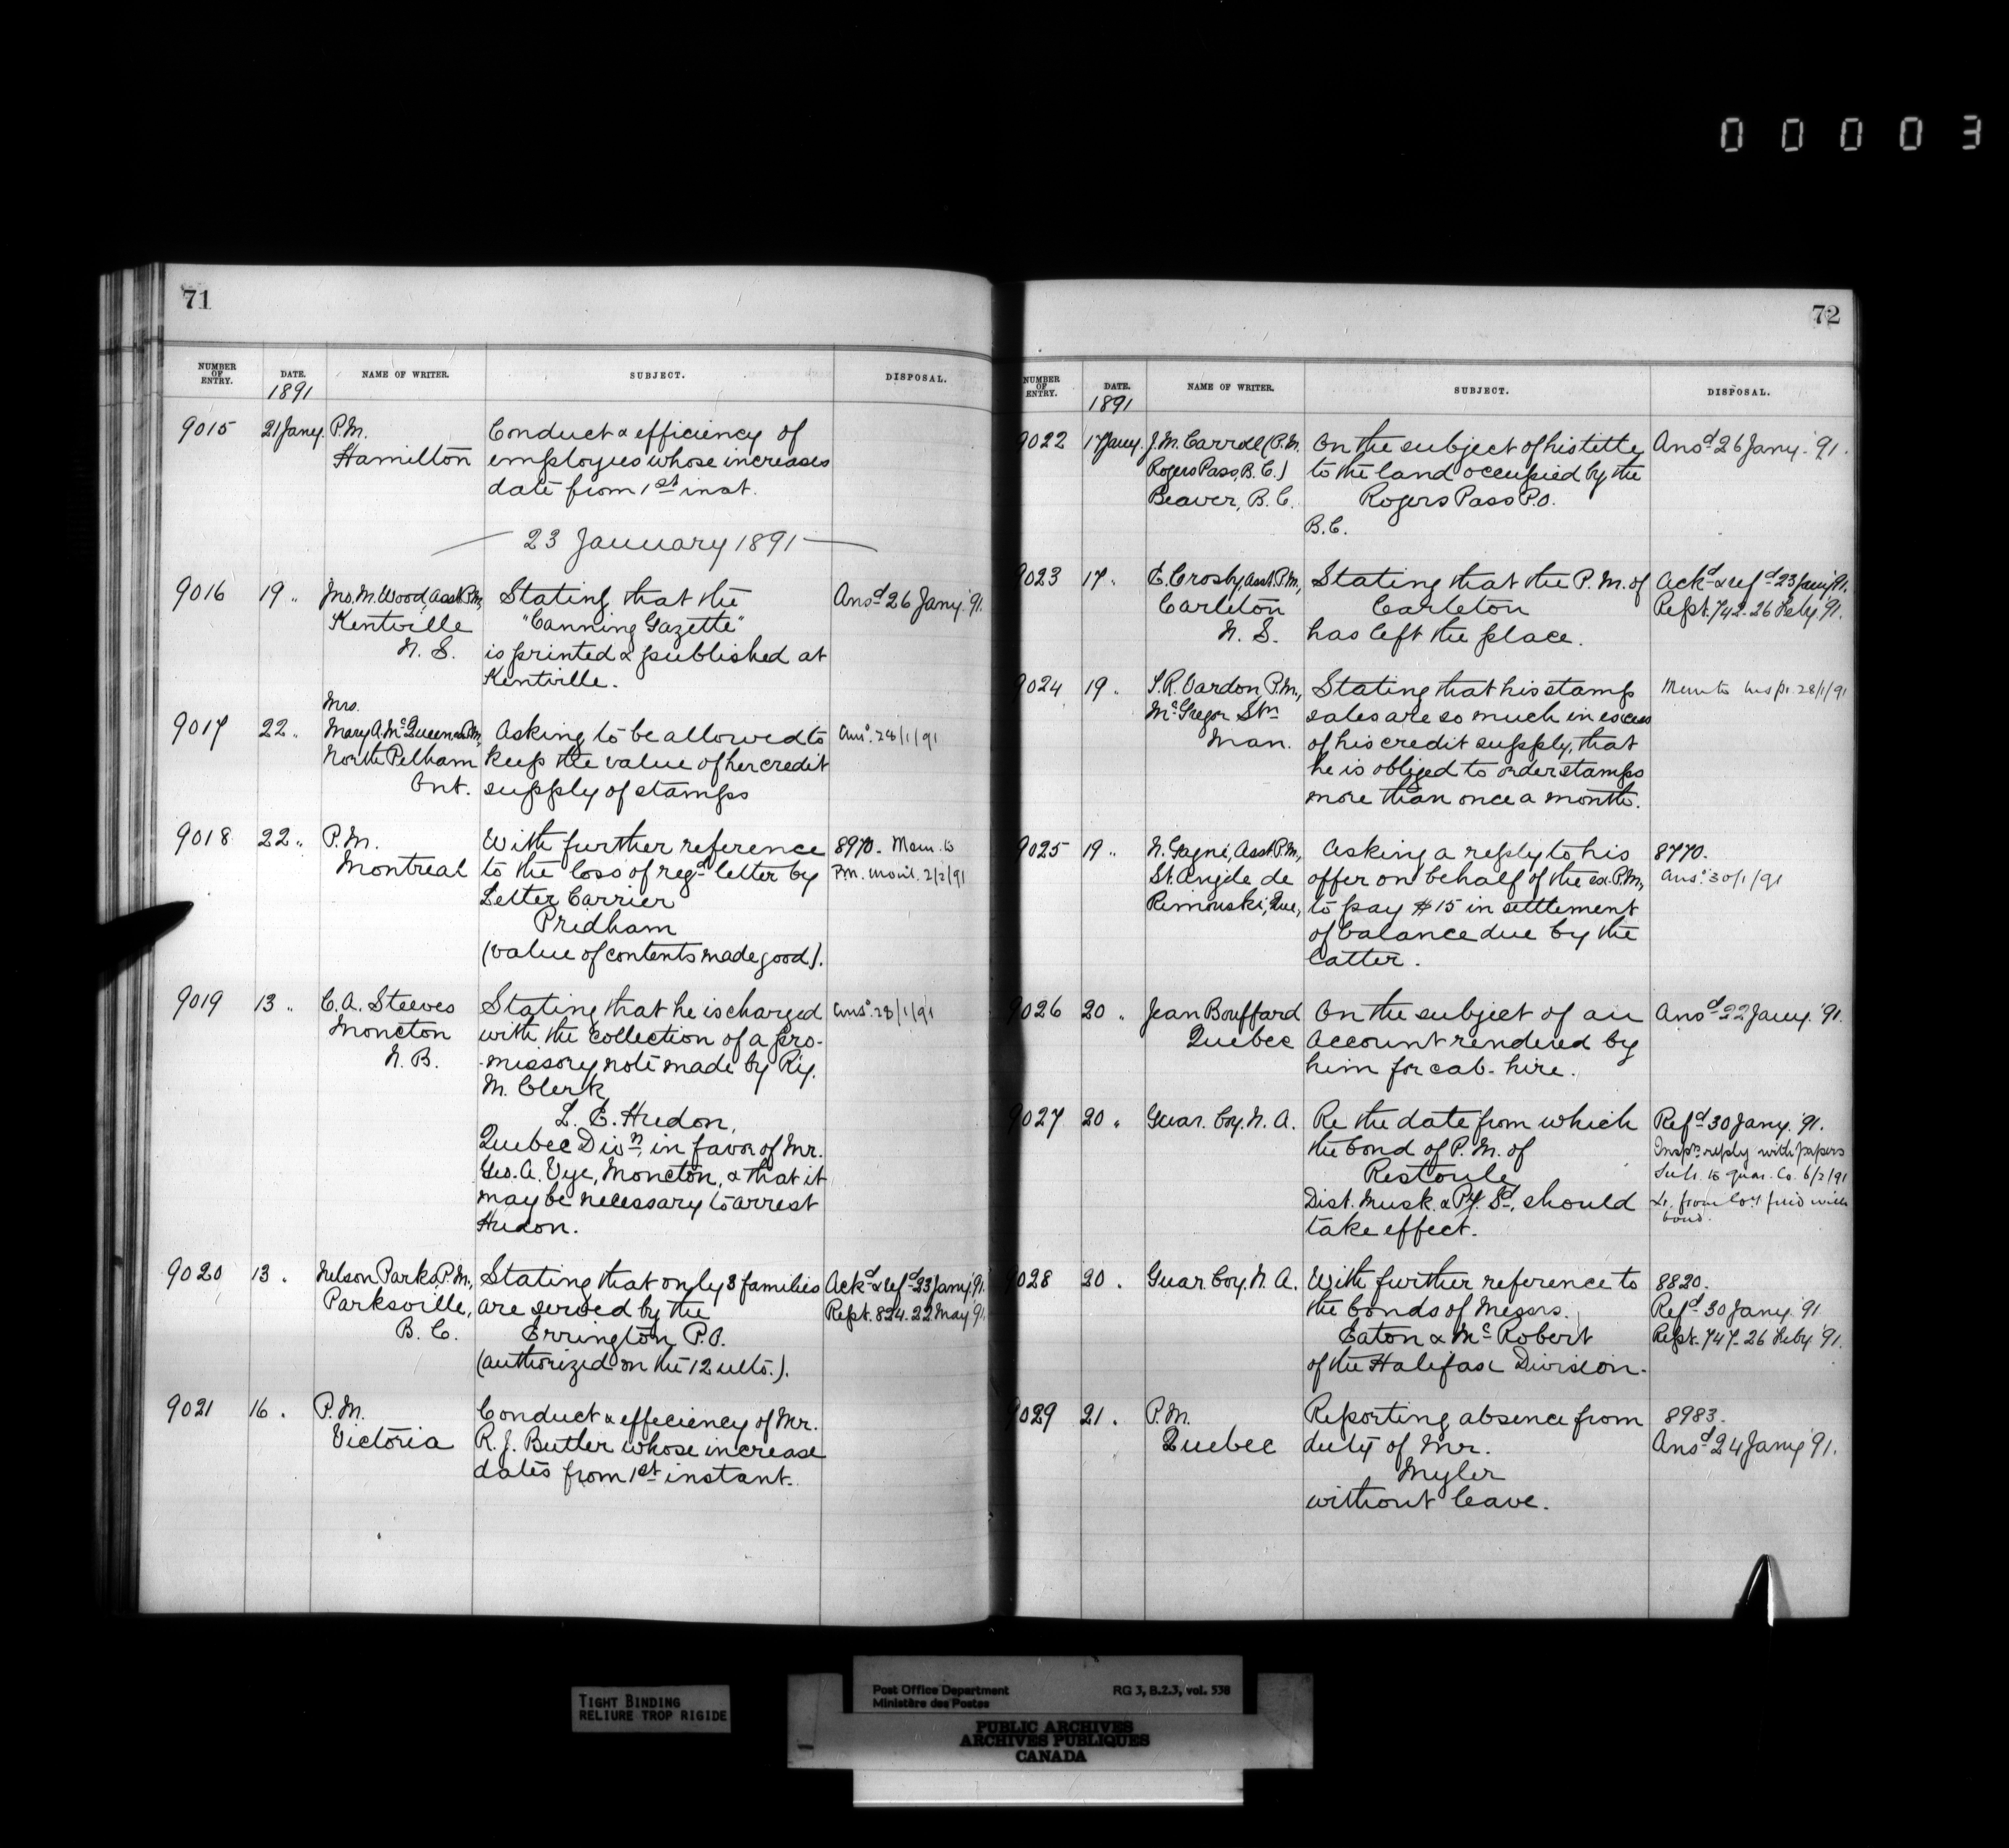 00003
71
NUMBER OF ENTRY. DATE. NAME OF WRITER. SUBJECT. DISPOSAL.
1891
9015 21 Jany. P.M. Conduct & efficiency of
Hamilton employees whose increases
date from 1st inst.
— 23 January 1891 —
9016 19 " Jno. M. Wood, Asst. P.M., Stating that the Ansd 26 Jany. '91.
Kentville "Canning Gazette"
N. S. is printed & published at
Kentville.
Mrs.
9017 22 " Mary A. McQueen P.M., Asking to be allowed to Ansd. 28/1/91
North Pelham keep the value of her credit
Ont. supply of stamps
9018 22 " P.M. With further reference 8970. Mem. to
Montreal to the loss of regd letter by P.M. Monl. 2/2/91
Letter Carrier
Pridham
(value of contents made good).
9019 13 " C. A. Steeves Stating that he is charged Ansd. 28/1/91
Moncton with the collection of a pro-
N. B. -missory note made by Ry.
M. Clerk
L. E. Hudon,
Quebec Divn, in favor of Mr.
Geo. A. Vye, Moncton, & that it
may be necessary to arrest
Hudon.
9020 13 " Nelson Parks, P.M., Stating that only 3 families Ackd & refd 23 Jany. '91.
Parksville, are served by the Rept. 824. 22 May '91.
B. C. Errington P.O.
(authorized on the 12 ulto.).
9021 16 " P.M. Conduct & efficiency of Mr.
Victoria R. J. Butler whose increase
dates from 1st instant.
72
NUMBER OF ENTRY. DATE. NAME OF WRITER. SUBJECT. DISPOSAL.
1891
9022 17 Jany. J. M. Carroll (P.M. On the subject of his title Ansd 26 Jany. '91.
Rogers Pass, B. C.) to the land occupied by the
Beaver, B. C. Rogers Pass P.O.
B.C.
9023 17 " E. Crosby, Asst. P.M., Stating that the P. M. of Ackd & refd 23 Jany '91.
Carleton Carleton Rept. 742 - 26 Feby '91.
N. S. has left the place.
9024 19 " S. R. Vardon, P.M., Stating that his stamp Mem to Inspr. 28/1/91
McGregor Stn sales are so much in excess
Man. of his credit supply, that
he is obliged to order stamps
more than once a month.
9025 19 " N. Gagné, Asst. P.M., Asking a reply to his 8770.
St. Angele de offer on behalf of the ex. P.M., Ansd. 30/1/91
Rimouski, Que., to pay $15 in settlement
of balance due by the
latter.
9026 20 " Jean Bouffard On the subject of an Ansd 22 Jany. '91.
Quebec account rendered by
him for cab-hire.
9027 20 " Guar. Coy. N. A. Re the date from which Refd 30 Jany. '91.
the bond of P. M. of Inspr's reply with papers
Restoule Sub. to Guar. Co. 6/2/91
Dist. Musk. & Py. Sd, should Lr. from Coy. filed with
take effect. bond.
9028 20 " Guar. Coy. N. A. With further reference to 8820.
the bonds of Messrs. Refd 30 Jany. '91
Eaton & McRobert Rept. 747 - 26 Feby '91.
of the Halifax Division.
9029 21 " P.M. Reporting absence from 8983.
Quebec duty of Mr. Ansd 24 Jany '91.
Myler
without leave.
TIGHT BINDING
RELIURE TROP RIGIDE
Post Office Department RG 3, B.2.3, vol. 538
Ministère des Postes
PUBLIC ARCHIVES
ARCHIVES PUBLIQUES
CANADA